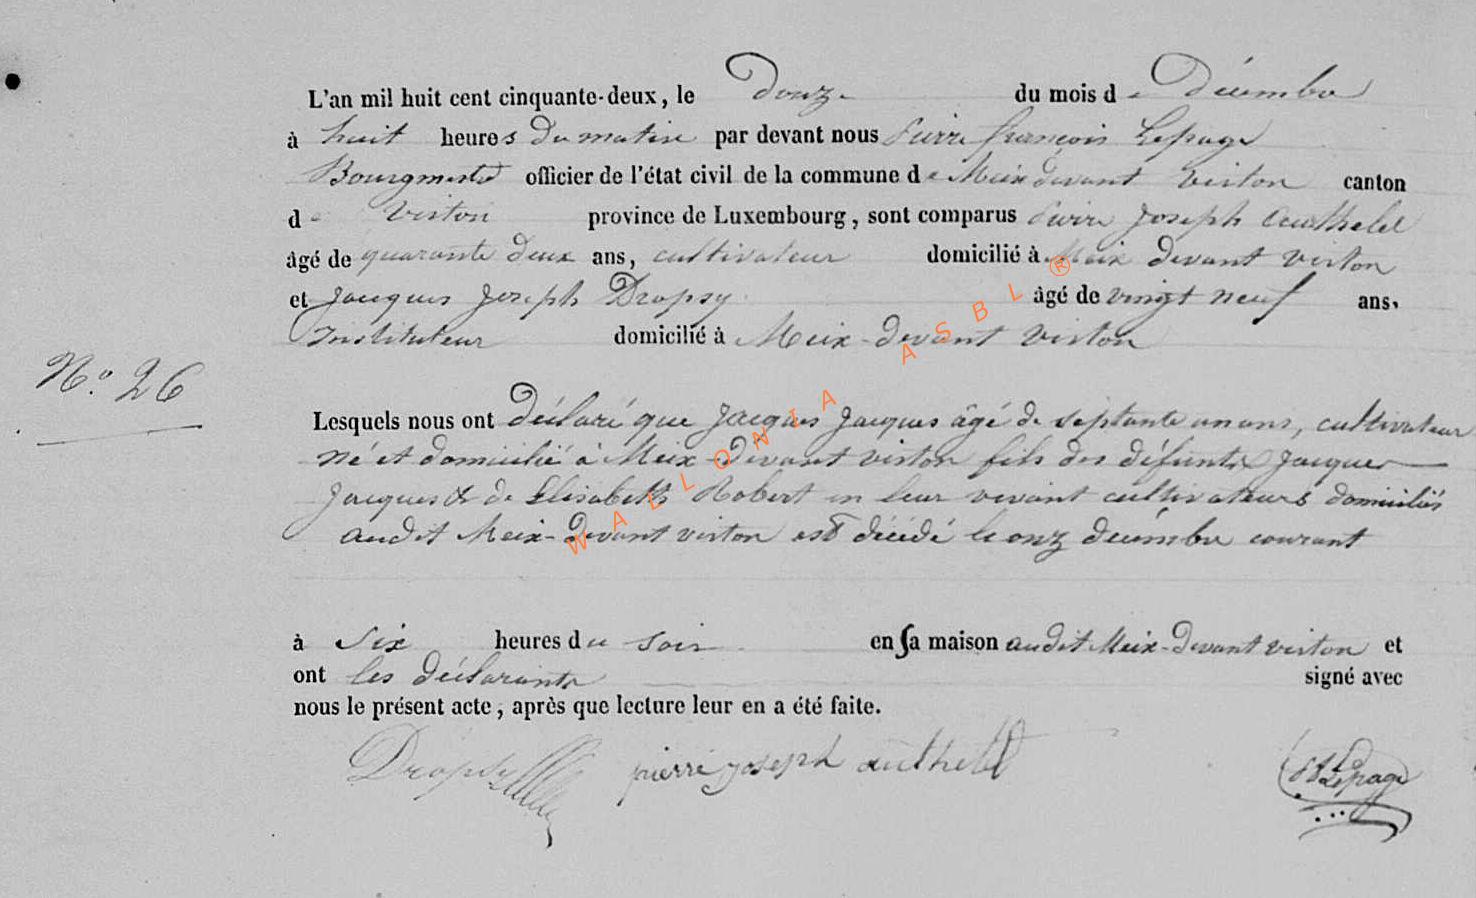 L'an mil huit cent cinquante-deux, le Douze du mois de Décembre
à huit heures Du matin par devant nous Pierre françois Lepage
Bourgmestre officier de l'état civil de la commune de Meix devant Virton canton
de Virton province de Luxembourg, sont comparus Pierre Joseph Authelet
âgé de quarante deux ans, cultivateur domicilié à Meix devant virton
et Jacques Joseph Dropsy âgé de vingt neuf ans,
Instituteur domicilié à Meix-devant virton
N.° 26
Lesquels nous ont Déclaré que Jacques Jacques âgé de septante un ans, cultivateur
né et domicilié à Meix-Devant virton fils des défunts Jacques
Jacques & de Elisabeth Robert en leur vivant cultivateurs domiciliés
audit Meix-Devant virton est décédé le onze décembre courant
à Six heures du soir en sa maison audit Meix-Devant virton et
ont les déclarants signé avec
nous le présent acte, après que lecture leur en a été faite.
Dropsy pierre joseph authelet Lepage
WALLONIA ASBL ®